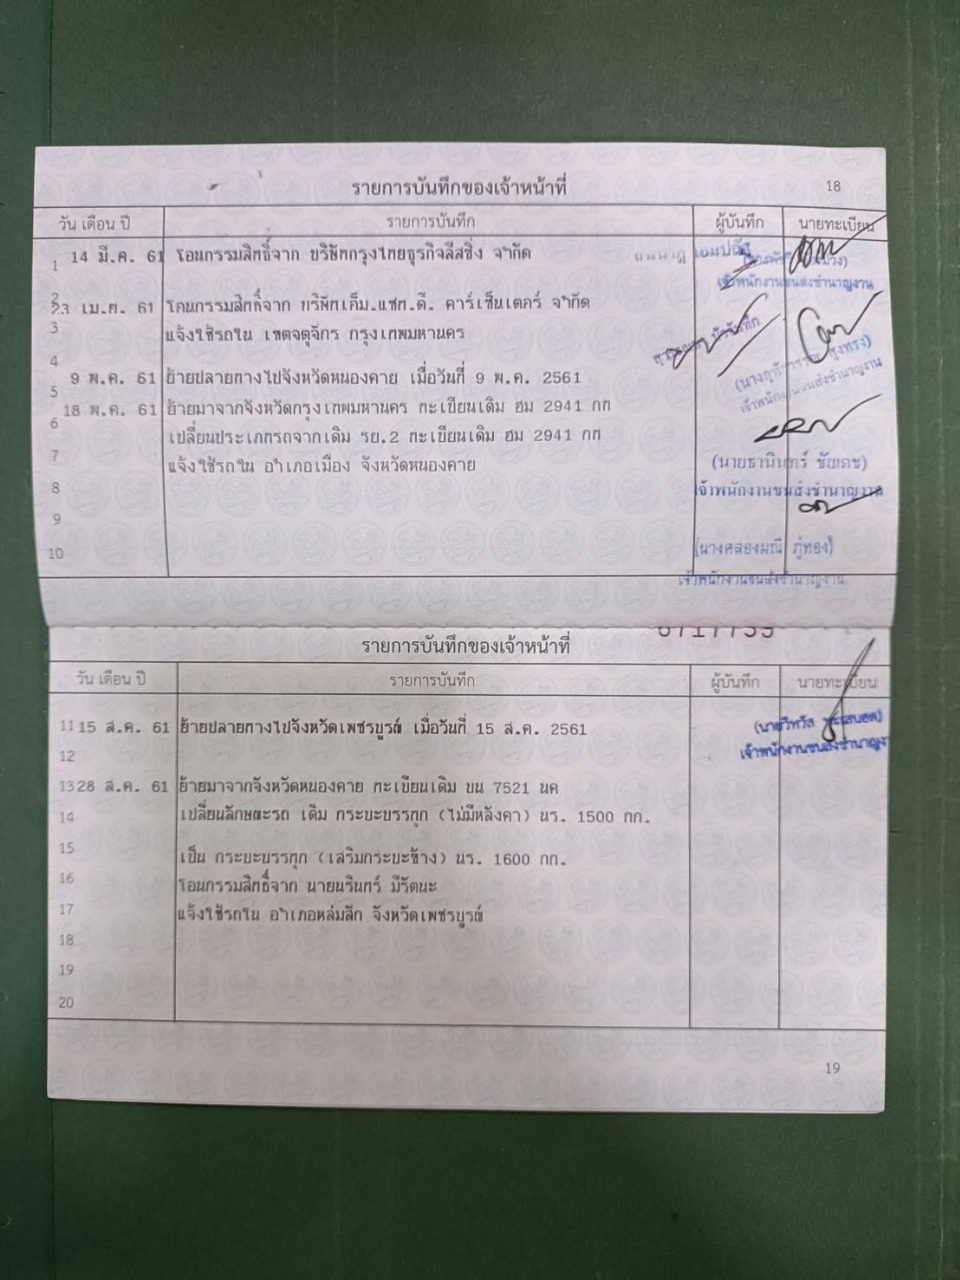 รายการบันทึกของเจ้าหน้าที่ 18
วัน เดือน ปี รายการบันทึก ผู้บันทึก นายทะเบียน
1 14 มี.ค. 61 โอนกรรมสิทธิ์จาก บริษัทกรุงไทยธุรกิจลีสซิ่ง จำกัด
เจ้าพนักงานขนส่งชำนาญงาน
2
23 เม.ย. 61 โอนกรรมสิทธิ์จาก บริษัทเค็ม.แซก.ดี. คาร์เซ็นเตอร์ จำกัด
3 แจ้งใช้รถใน เขตจตุจักร กรุงเทพมหานคร
4
9 พ.ค. 61 ย้ายปลายทางไปจังหวัดหนองคาย เมื่อวันที่ 9 พ.ค. 2561
เจ้าพนักงานขนส่งชำนาญงาน
5
18 พ.ค. 61 ย้ายมาจากจังหวัดกรุงเทพมหานคร ทะเบียนเดิม ฮม 2941 กท
6 เปลี่ยนประเภทรถจากเดิม รย.2 ทะเบียนเดิม ฮม 2941 กท
7 แจ้งใช้รถใน อำเภอเมือง จังหวัดหนองคาย
(นายธานินทร์ ชัยเดช)
8 เจ้าพนักงานขนส่งชำนาญงาน
9
10 (นางคลองมณี ภู่ทอง)
เจ้าพนักงานขนส่งชำนาญงาน
6717759
รายการบันทึกของเจ้าหน้าที่
วัน เดือน ปี รายการบันทึก ผู้บันทึก นายทะเบียน
11 15 ส.ค. 61 ย้ายปลายทางไปจังหวัดเพชรบูรณ์ เมื่อวันที่ 15 ส.ค. 2561
เจ้าพนักงานขนส่งชำนาญงาน
12
13 28 ส.ค. 61 ย้ายมาจากจังหวัดหนองคาย ทะเบียนเดิม บน 7521 นค
14 เปลี่ยนลักษณะรถ เดิม กระบะบรรทุก (ไม่มีหลังคา) นร. 1500 กก.
15 เป็น กระบะบรรทุก (เสริมกระบะข้าง) นร. 1600 กก.
16 โอนกรรมสิทธิ์จาก นายนรินทร์ มีรัตนะ
17 แจ้งใช้รถใน อำเภอหล่มสัก จังหวัดเพชรบูรณ์
18
19
20
19